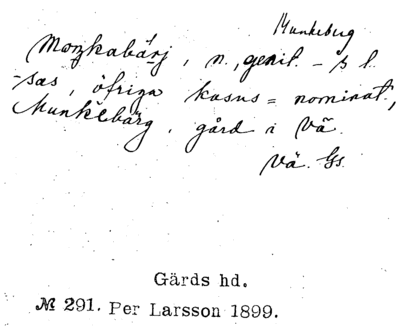 Munkeberg
Monkabärj, n., genit. -s l.
-sas, öfriga kasus = nominat.,
Munkebärg, gård i Vä.
Vä. Gs.
Gärds hd.
№ 291. Per Larsson 1899.